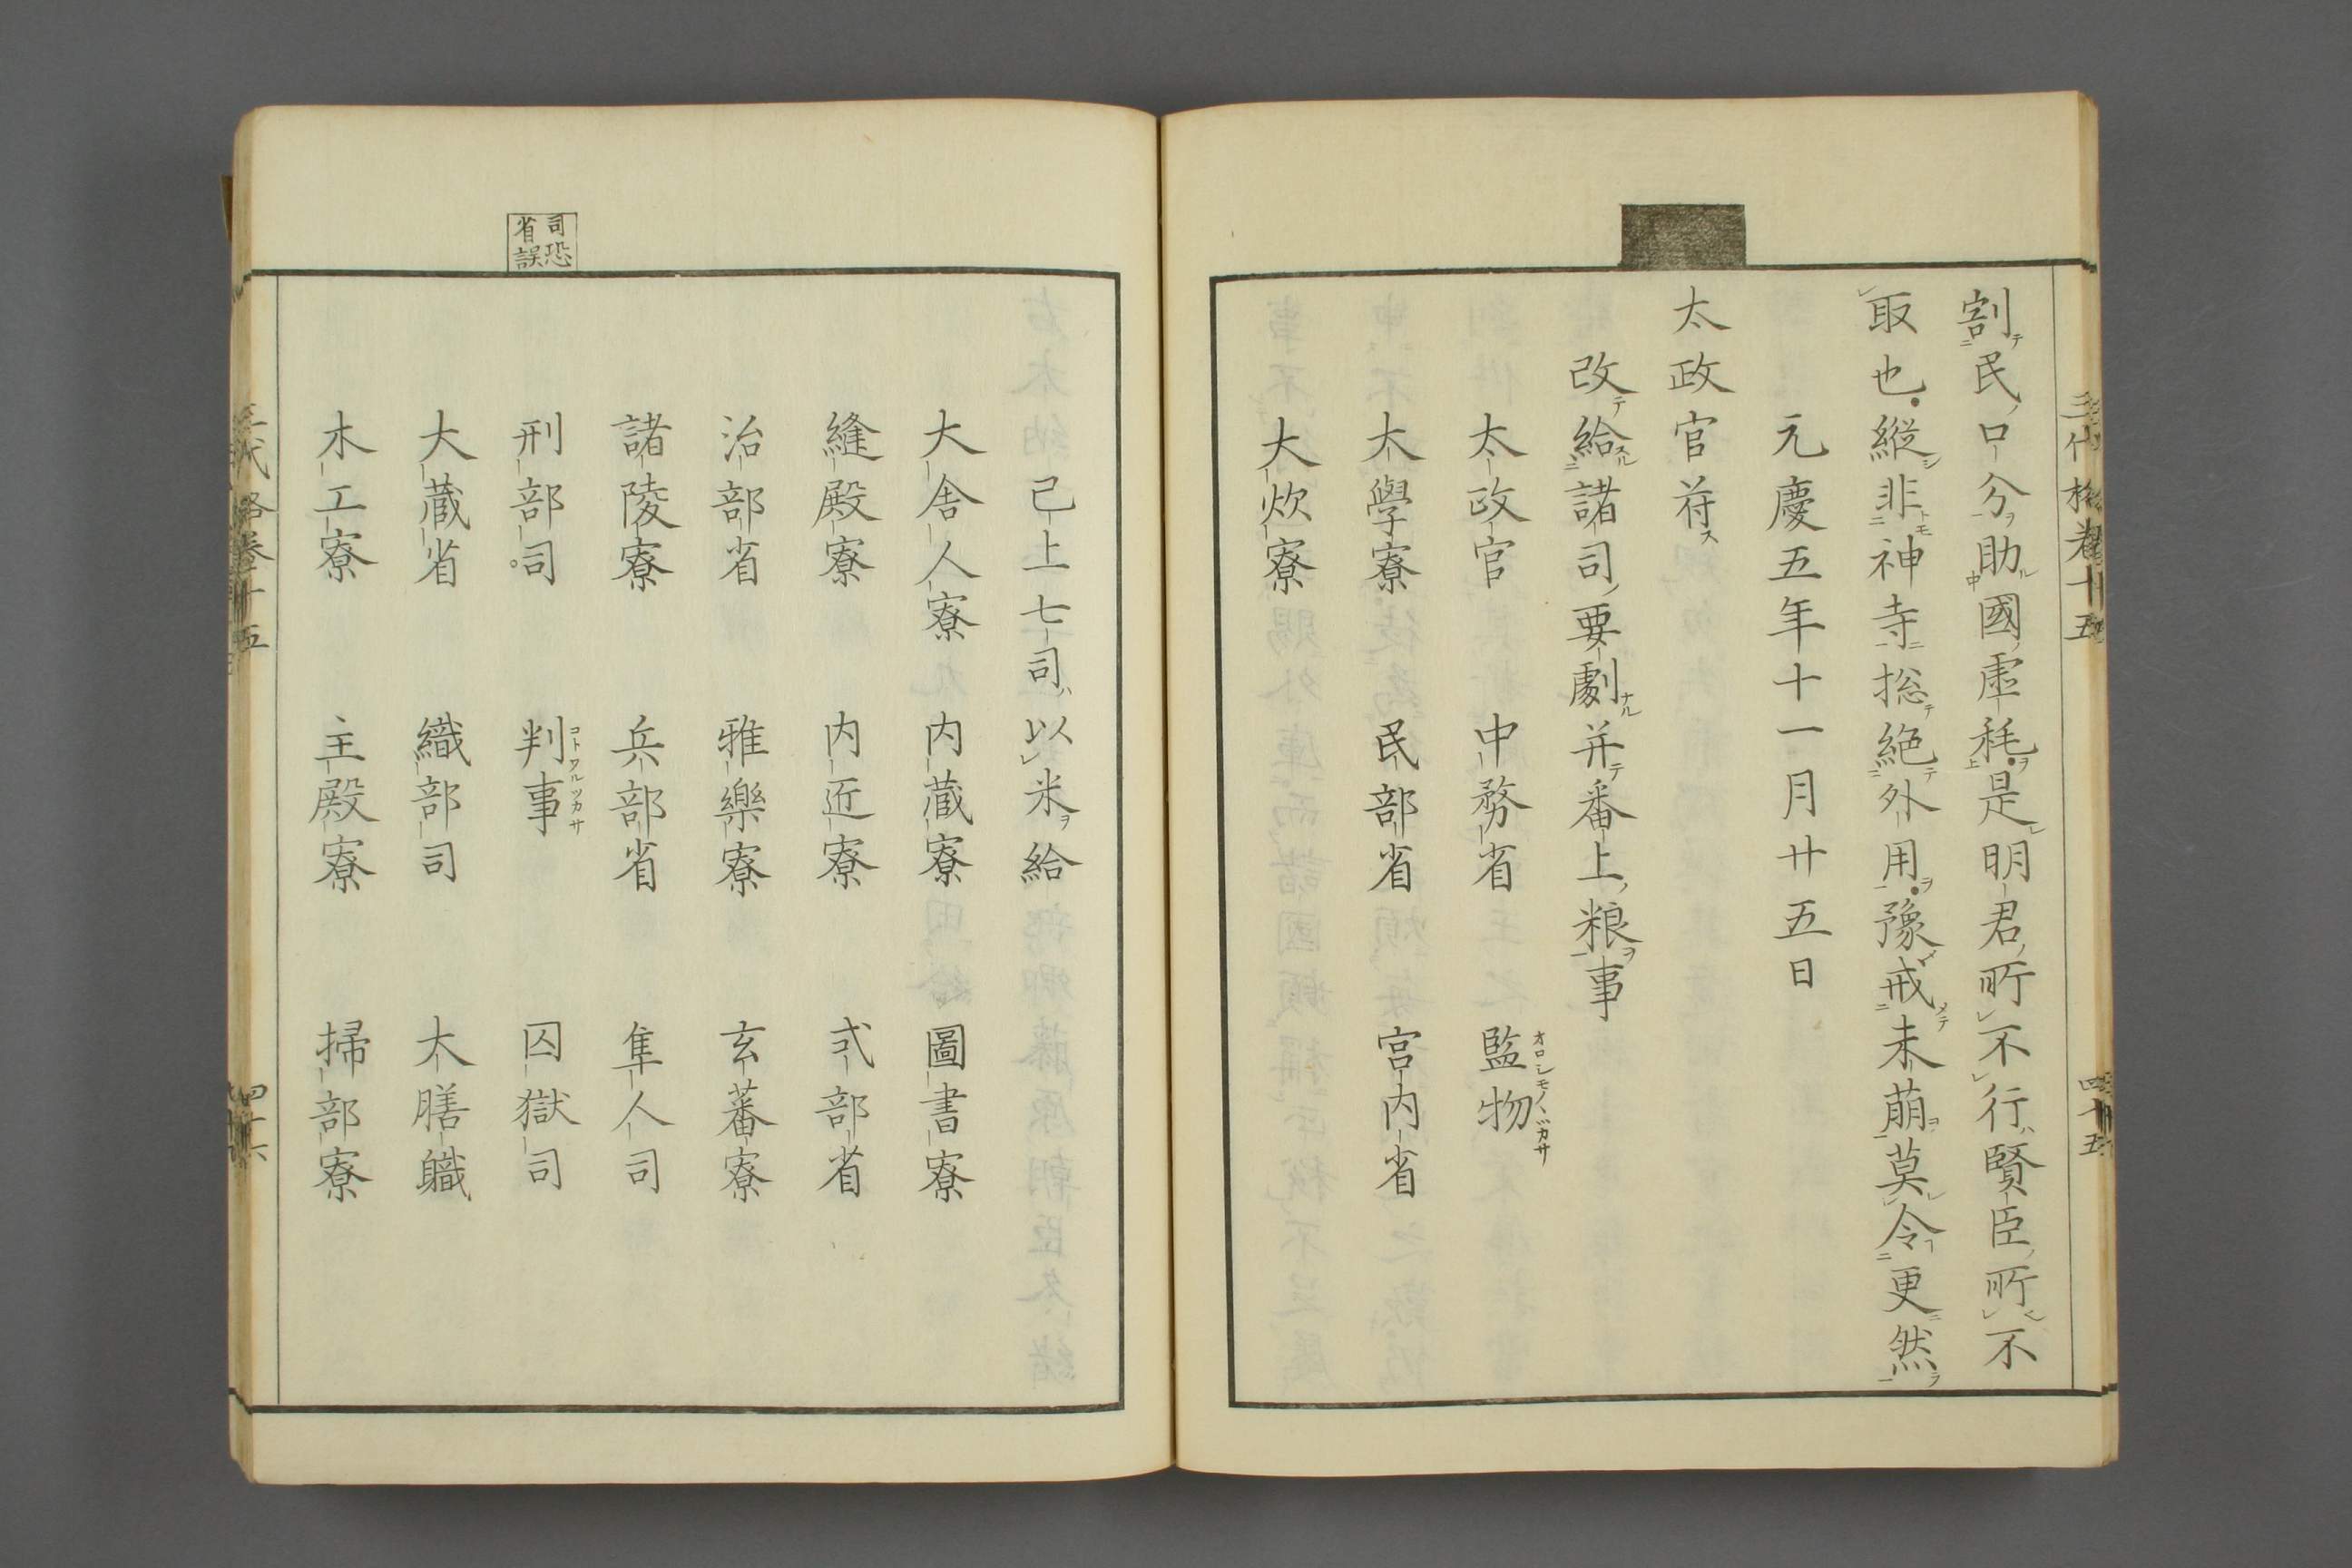 三代格卷十五
四十五
割民口分助國虛耗是明君所不行賢臣所不
取也縱非神寺捴絶外用豫戒未萠莫令更然
元慶五年十一月廿五日
太政官苻
改給諸司要劇并番上粮事
太政官 中務省 監物
大學寮 民部省 宮内省
大炊寮
已上七司以米給
大舎人寮 内蔵寮 圖書寮
縫殿寮 内匠寮 式部省
治部省 雅樂寮 玄蕃寮
諸陵寮 兵部省 隼人司
司恐
省誤
刑部司 判事 囚獄司
大蔵省 織部司 大膳職
木工寮 主殿寮 掃部寮
三代格卷十五
四十六